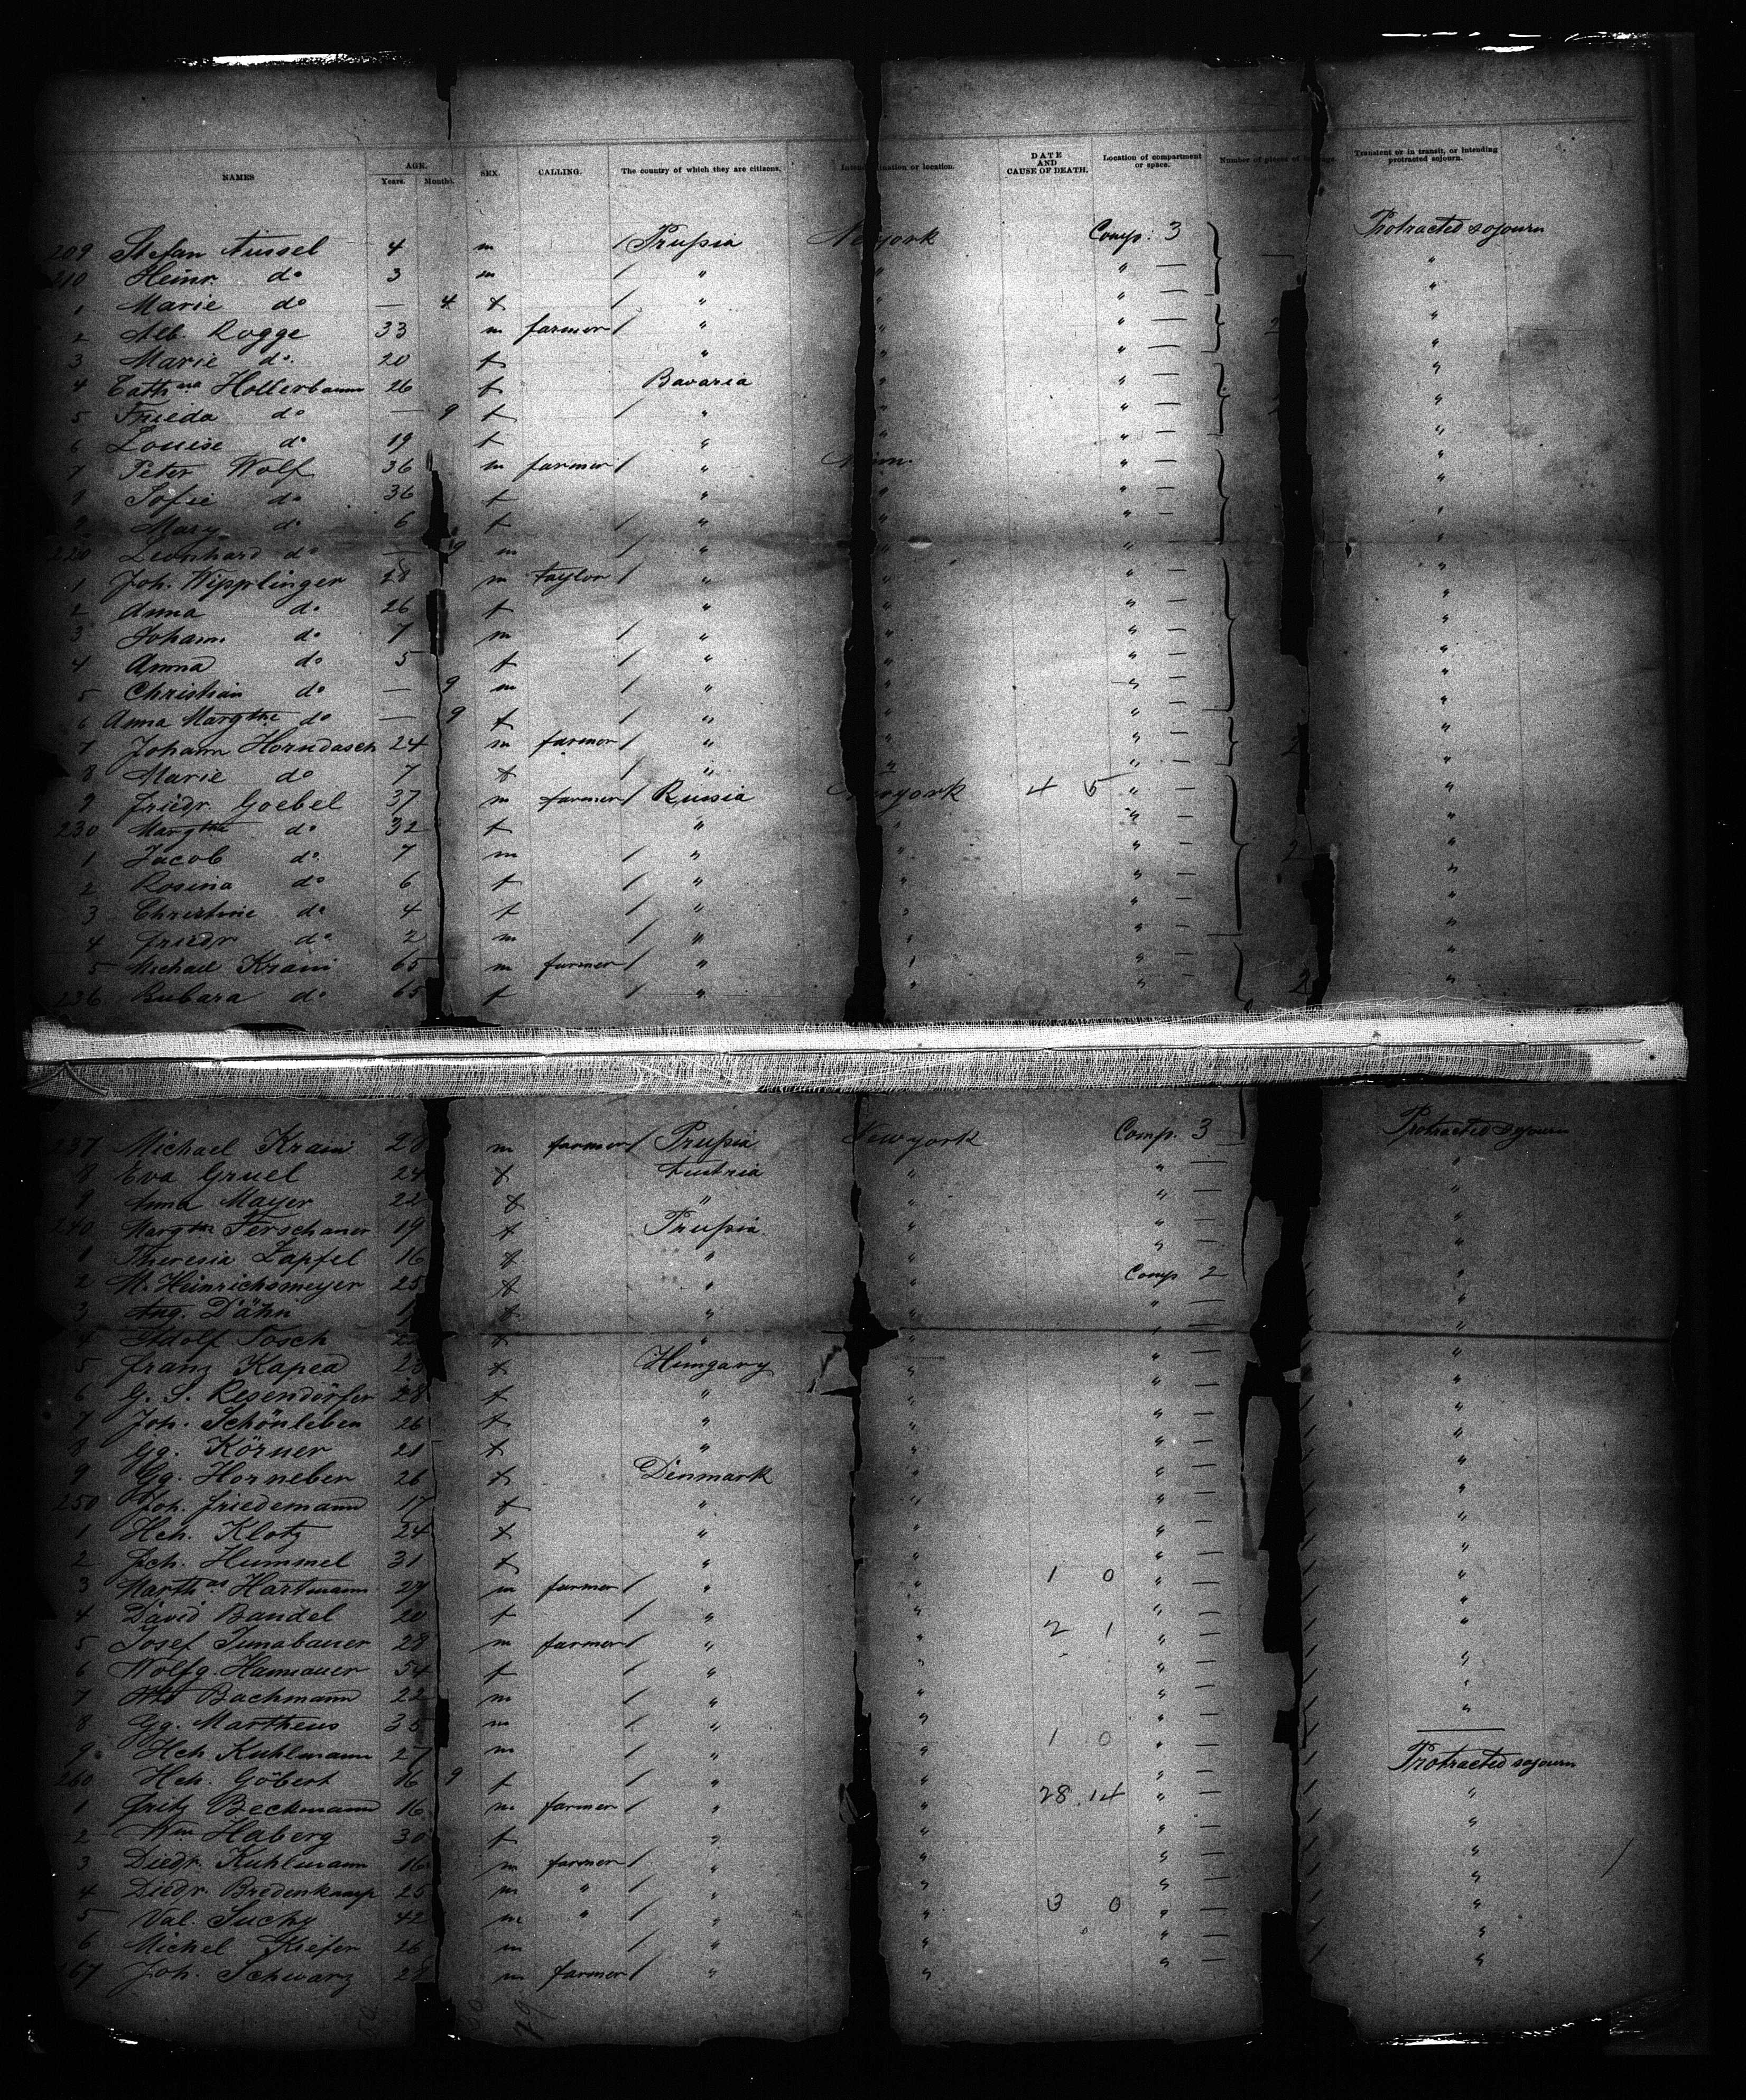 NAMES AGE. Years. Months. SEX. CALLING. The country of which they are citizens. ination or location. DATE AND CAUSE OF DEATH. Location of compartment or space. Number of pieces of Transient or in transit, or intending protracted sojourn.
209 Stefan Nüssel 4 m / Prußia New york Comp: 3 Protracted sojourn
210 Heinr. do 3 m / " " " — "
1 Marie do — 4 f / " " " — "
2 Alb. Rogge 33 m farmer / " " " — "
3 Marie do. 20 f " " " — "
4 Cathna Hollerbaum 26 f Bavaria " " — "
5 Frieda do — 9 f / " " " — "
6 Louise do 19 f " " " — "
7 Peter Wolf 36 m farmer / " " — "
8 Sofie do 36 f " " " — "
9 Mary do 6 f / " " " — "
220 Leonhard do — 9 m / " " " — "
1 Joh. Wipplinger 28 m taylor / " " " — "
2 Anna do 26 f " " " — "
3 Johann do 7 m / " " " — "
4 Anna do 5 f / " " " — "
5 Christian do — 9 m / " " " — "
6 Anna Margthe do — 9 f / " " " — "
7 Johann Horndasch 24 m farmer / " " " — 2 "
8 Marie do 7 f / " " " — "
9 Friedr. Goebel 37 m farmer / Russia New york 4 5 " — "
230 Margthe do 32 f " " " — "
1 Jacob do. 7 m / " " " — 2 "
2 Rosina do 6 f / " " " — "
3 Christine do 4 f / " " " — "
4 Friedr do 2 m / " " " — "
5 Michael Krain 65 m farmer / " " " — "
236 Bubara do 65 f / " " " — 2 "
237 Michael Krain 28 m farmer / Prußia New york Comp. 3 — Protracted sojourn
8 Eva Gruel 24 f Austria " " — "
9 Anna Mayer 22 f " " " — "
240 Margthe Ferschaner 19 f Prußia " " — "
1 Theresia Zapfel 16 f " " " — "
2 M. Heinrichsmeyer 25 f " " Comp 2 "
3 Aug. Dähn f " " " — "
4 Adolf Tosch f " " " — "
5 Franz Kapea 23 f Hungary " " — "
6 G. S. Resendörfer 28 f " " " — "
7 Joh. Schönleben 26 f " " " — "
8 Gg. Körner 21 f " " " — "
9 Gg. Horneber 26 f Denmark " " — "
250 Joh. Friedemann 17 f " " " — "
1 Hch. Klotz 24 f " " " — "
2 Hummel 31 f " " " — "
3 Hartmann 27 m farmer / " " 1 0 " — "
4 David Bandel 20 f / " " " — "
5 Josef 28 m farmer / " " 2 1 " — "
6 Wolfg. Hannauer 54 f / " " " — "
7 Bachmann 22 m / " " " — "
8 Gg. Martheus 35 m / " " " —
9 Hch Kuhlmann 27 m / " " 1 0 " — Protracted sojourn
260 Hch. Göbert 16 9 f / " " " — "
1 Fritz Beckmann 16 m farmer / " " 28.14 " — "
2 Wm Haberg 30 f " " " — "
3 Diedr. Kuhlmann 16 m farmer / " " " — "
4 Diedr. Bredenkamp 25 m " / " " " — "
5 Val. Suchy 42 m " / " " 3 0 " — "
6 Michel Kiefer 26 m / " " " — "
267 Joh. Schwarz 28 m farmer / " " " — "